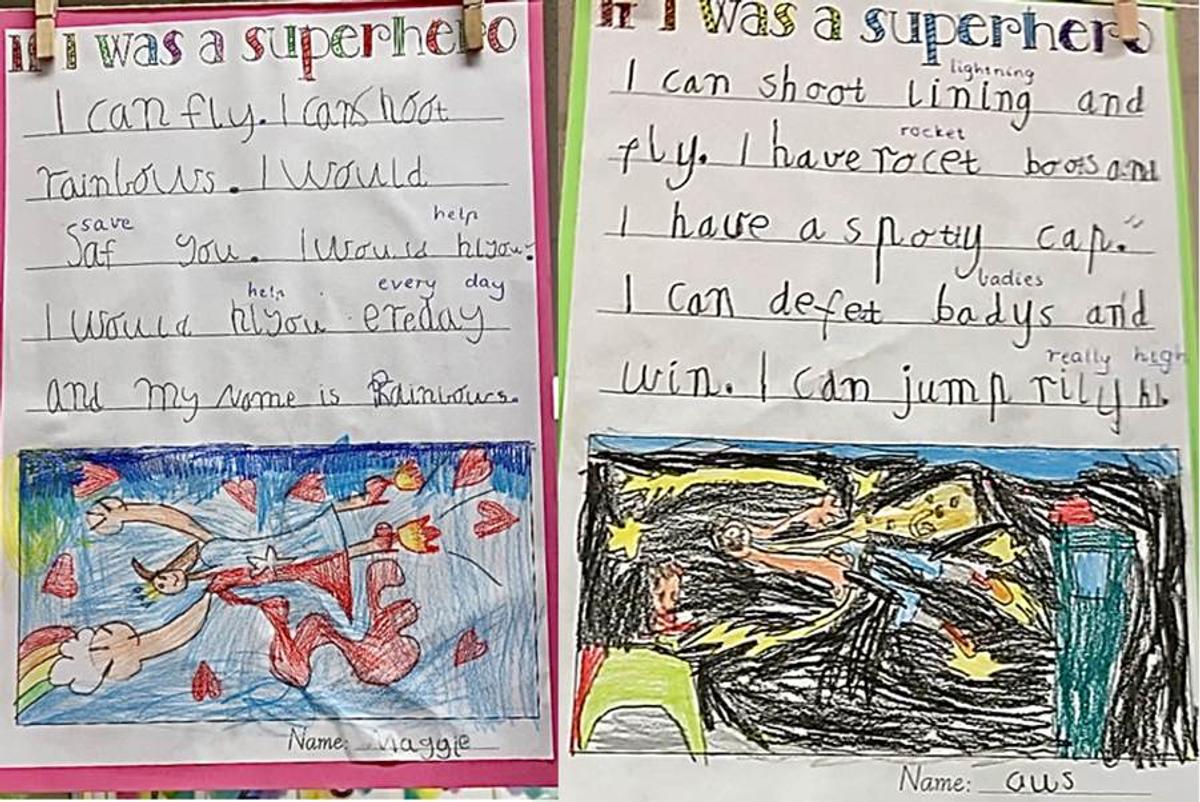 If I was a superhero
I can fly. I can shoot
rainbows. I would
save help
Saf you. I would hlyou.
help every day
I would hlyou ereday
and My Name is Rainbows.
Name: Maggie
If I was a superhero
lightning
I can shoot lining and
rocket
fly. I have rocet boots and
I have a spotty cap.
badies
I can defet badys and
really high
win. I can jump rily hi.
Name: aws